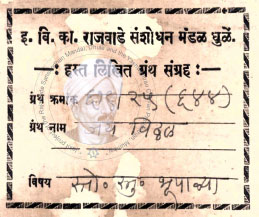 इ. वि. का. राजवाडे संशोधन मंडळ धुळें.
—: हस्त लिखित ग्रंथ संग्रह :—
ग्रंथ क्रमांक २५ (६४४)
ग्रंथ नाम जय विठ्ठल
विषय स्तो. स्तु. भूपाळ्या